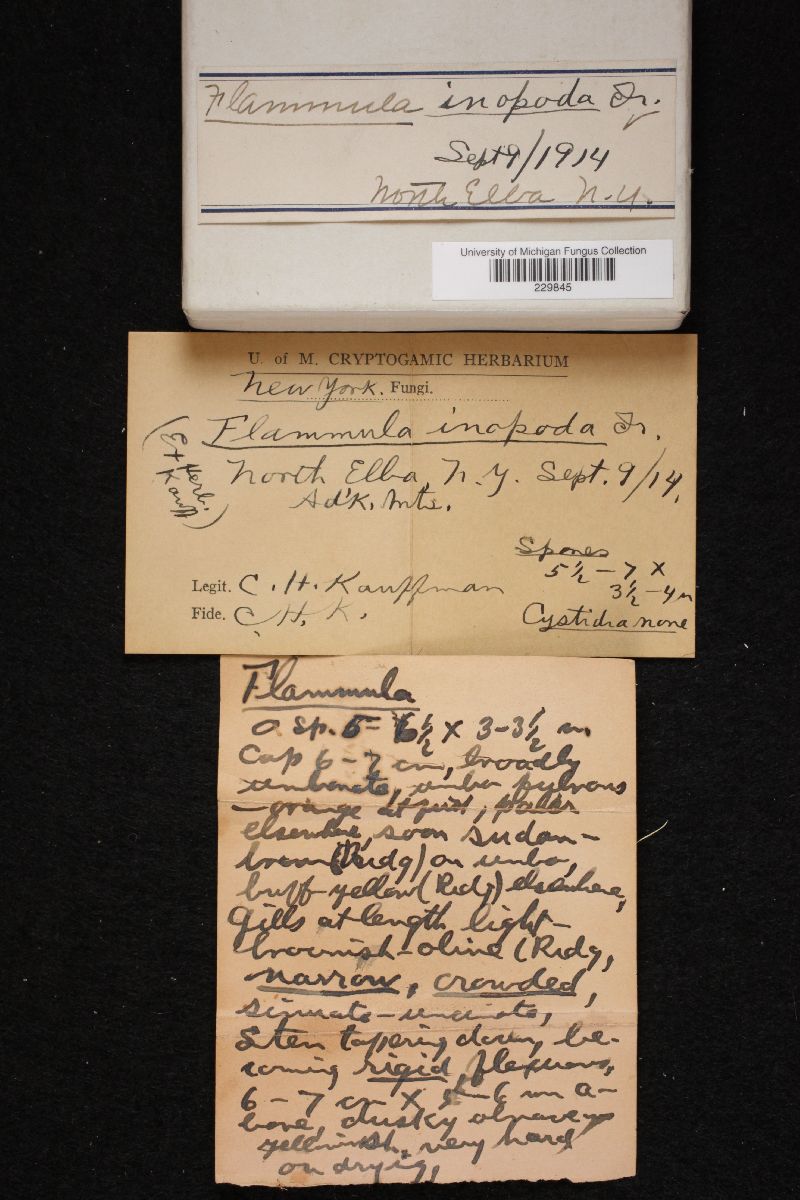 Flammula inopoda Fr.
Sept 9/1914
North Elba N.Y.
University of Michigan Fungus Collection
229845
U. of M. CRYPTOGAMIC HERBARIUM
New York. Fungi.
Flammula inopoda Fr.
(Ex Herb. Kauff)
North Elba, N.Y. Sept. 9/14.
Ad'k. Mts.
Spores
5 1/2 - 7 x
3 1/2 - 4 µ
Legit. C. H. Kauffman
Fide. C. H. K.
Cystidia none
Flammula
Sp. 5 - 6 1/2 x 3 - 3 1/2 µ
Cap 6 - 7 cm, broadly
umbonate, umbo fulvous
- orange at first, paler
elsewhere, soon sudan-
brown (Ridg) on umbo,
buff-yellow (Ridg) elsewhere,
Gills at length light-
brownish-olive (Ridg,
narrow, crowded,
sinuate-uncinate,
Stem tapering down, be-
coming rigid, flexuous,
6 - 7 cm x mm a-
bove, dusky
yellowish, very hard
on drying,